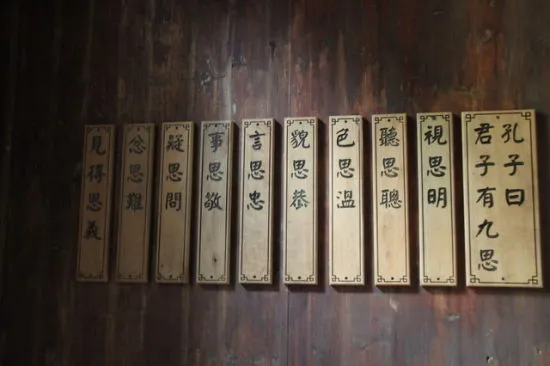 孔子曰
君子有九思
視思明
聽思聰
色思溫
貌思恭
言思忠
事思敬
疑思問
忿思難
見得思義